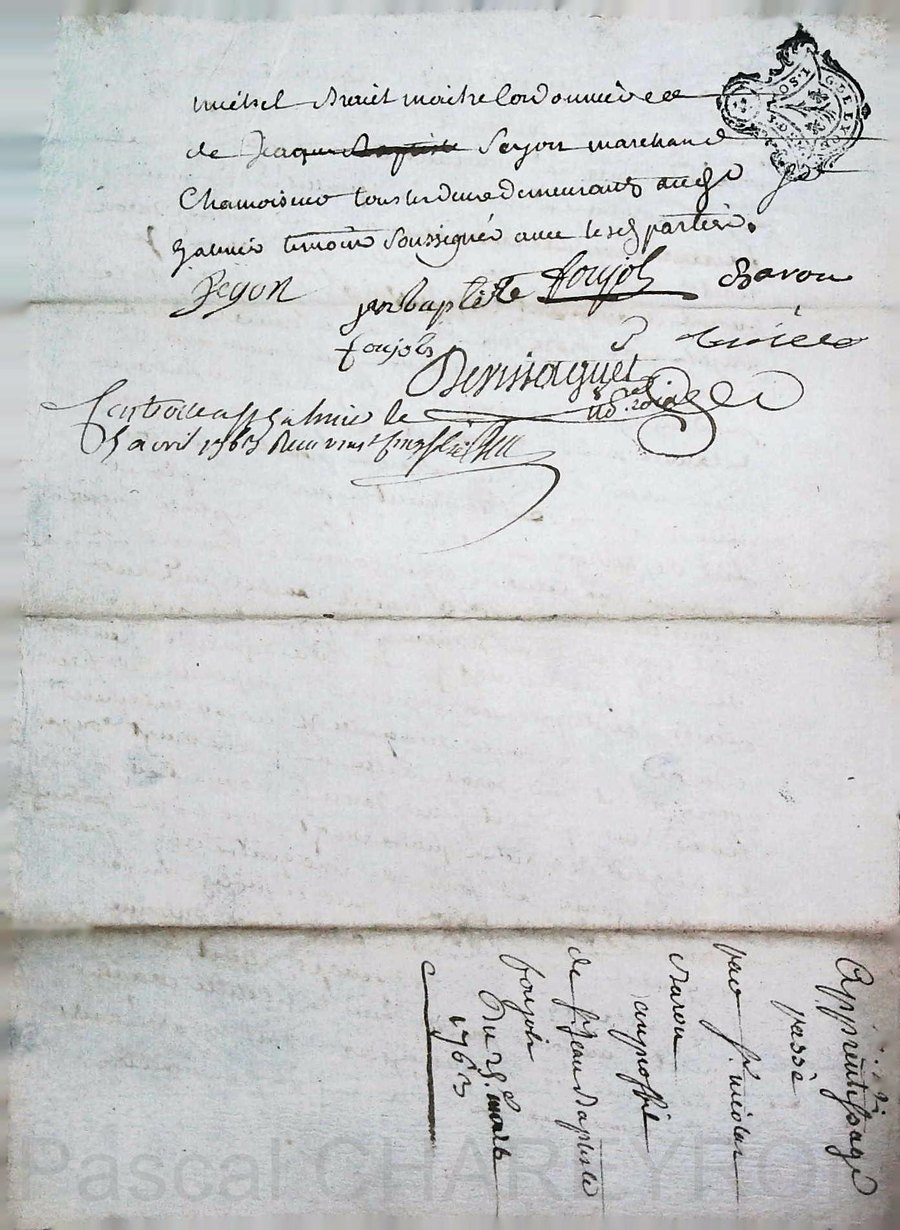 michel maitre Cordonnier et
de Jaques Baptiste Seyon marchand
Chamoiseur tous les deux demeurants audt St
Galmier temoins soussignés avec lesd. parties.
Segon
jean baptiste foujols Baron
foujols
Dennaguet
no.re roial
Controllé a St Galmie le
5 avril 1763 Recu
Apprentissage
passé
par sr. nicolas
Baron
au proffit
de sr. Jean Baptiste
foujols
Du 29e mars
1763
G. DE LYON
Pascal CHAREYRON